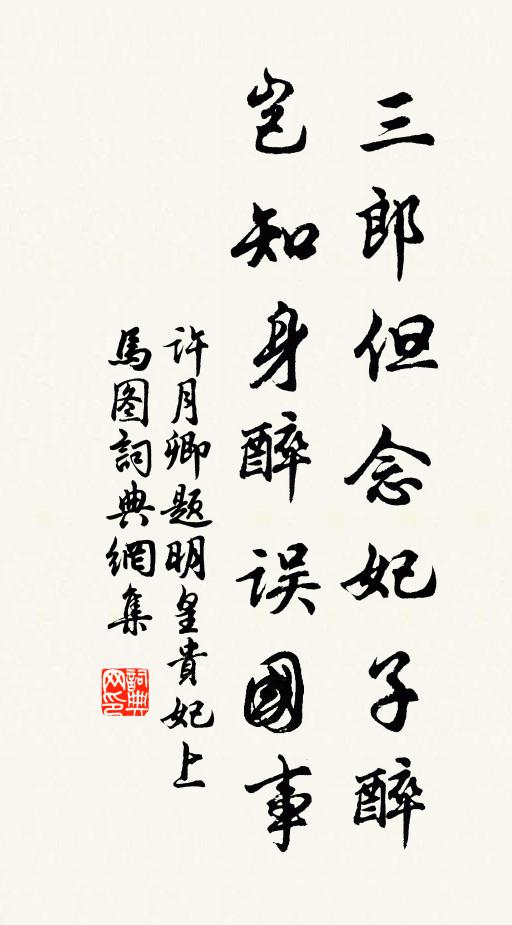 三郎但念妃子醉
岂知身醉误國事
许月卿题明皇貴妃上
馬图詞典網集
詞典网印